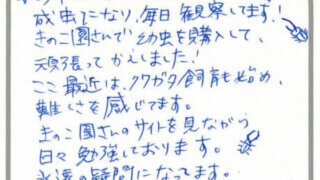 成虫でになり、毎日観察してます!
きのこ園さんで幼虫を購入して、
頑張ってかえしました!
ここ最近は、クワガタ飼育も始め、
難しさを感じてます。
きのこ園さんのサイトを見ながら
日々勉強しております。
永遠の疑問になってます。